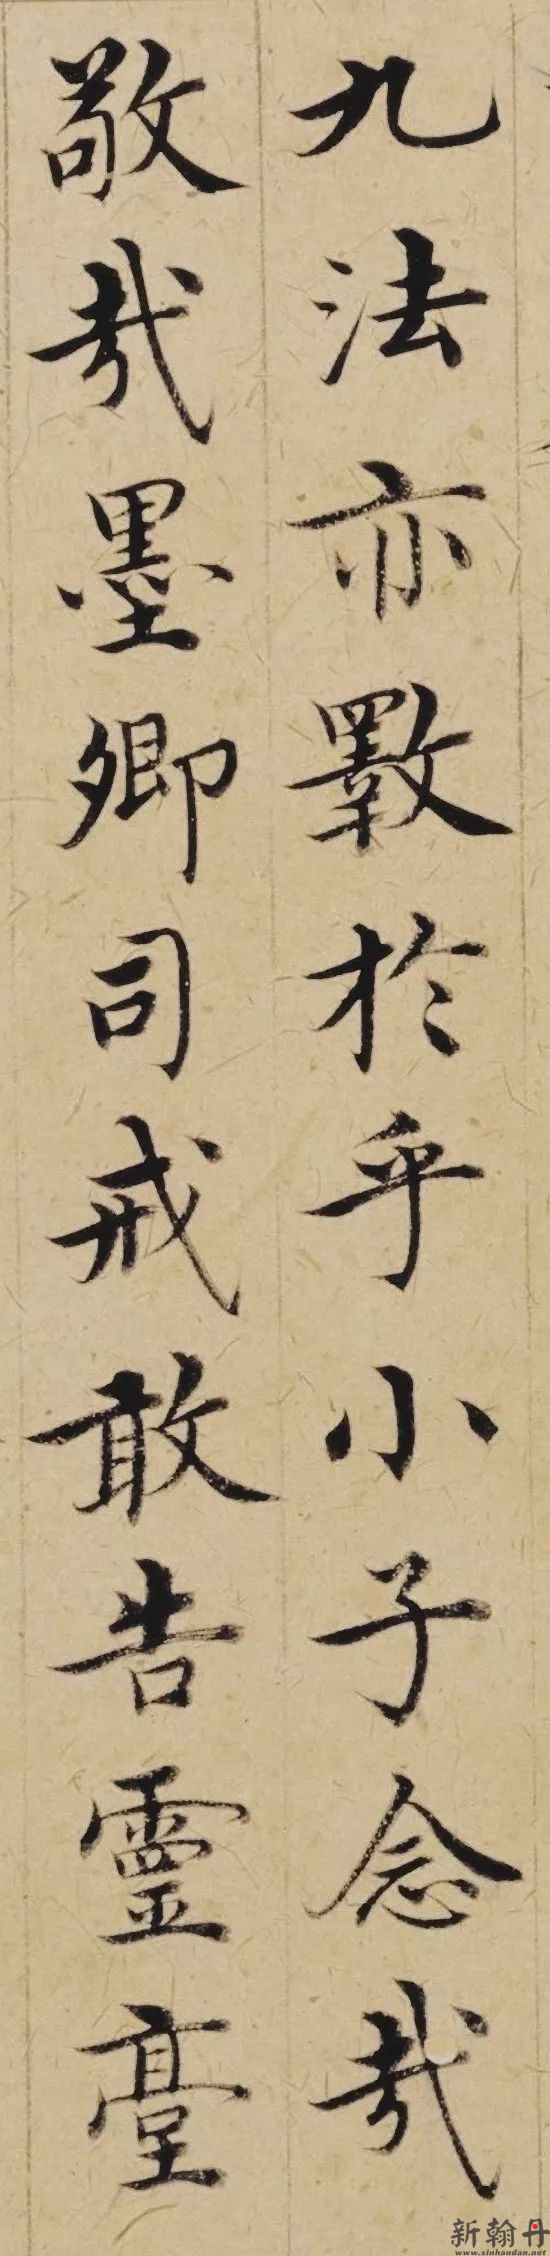 九法亦斁於乎小子念哉
敬哉墨卿司戒敢告靈臺
新翰丹
www.xinhandan.net